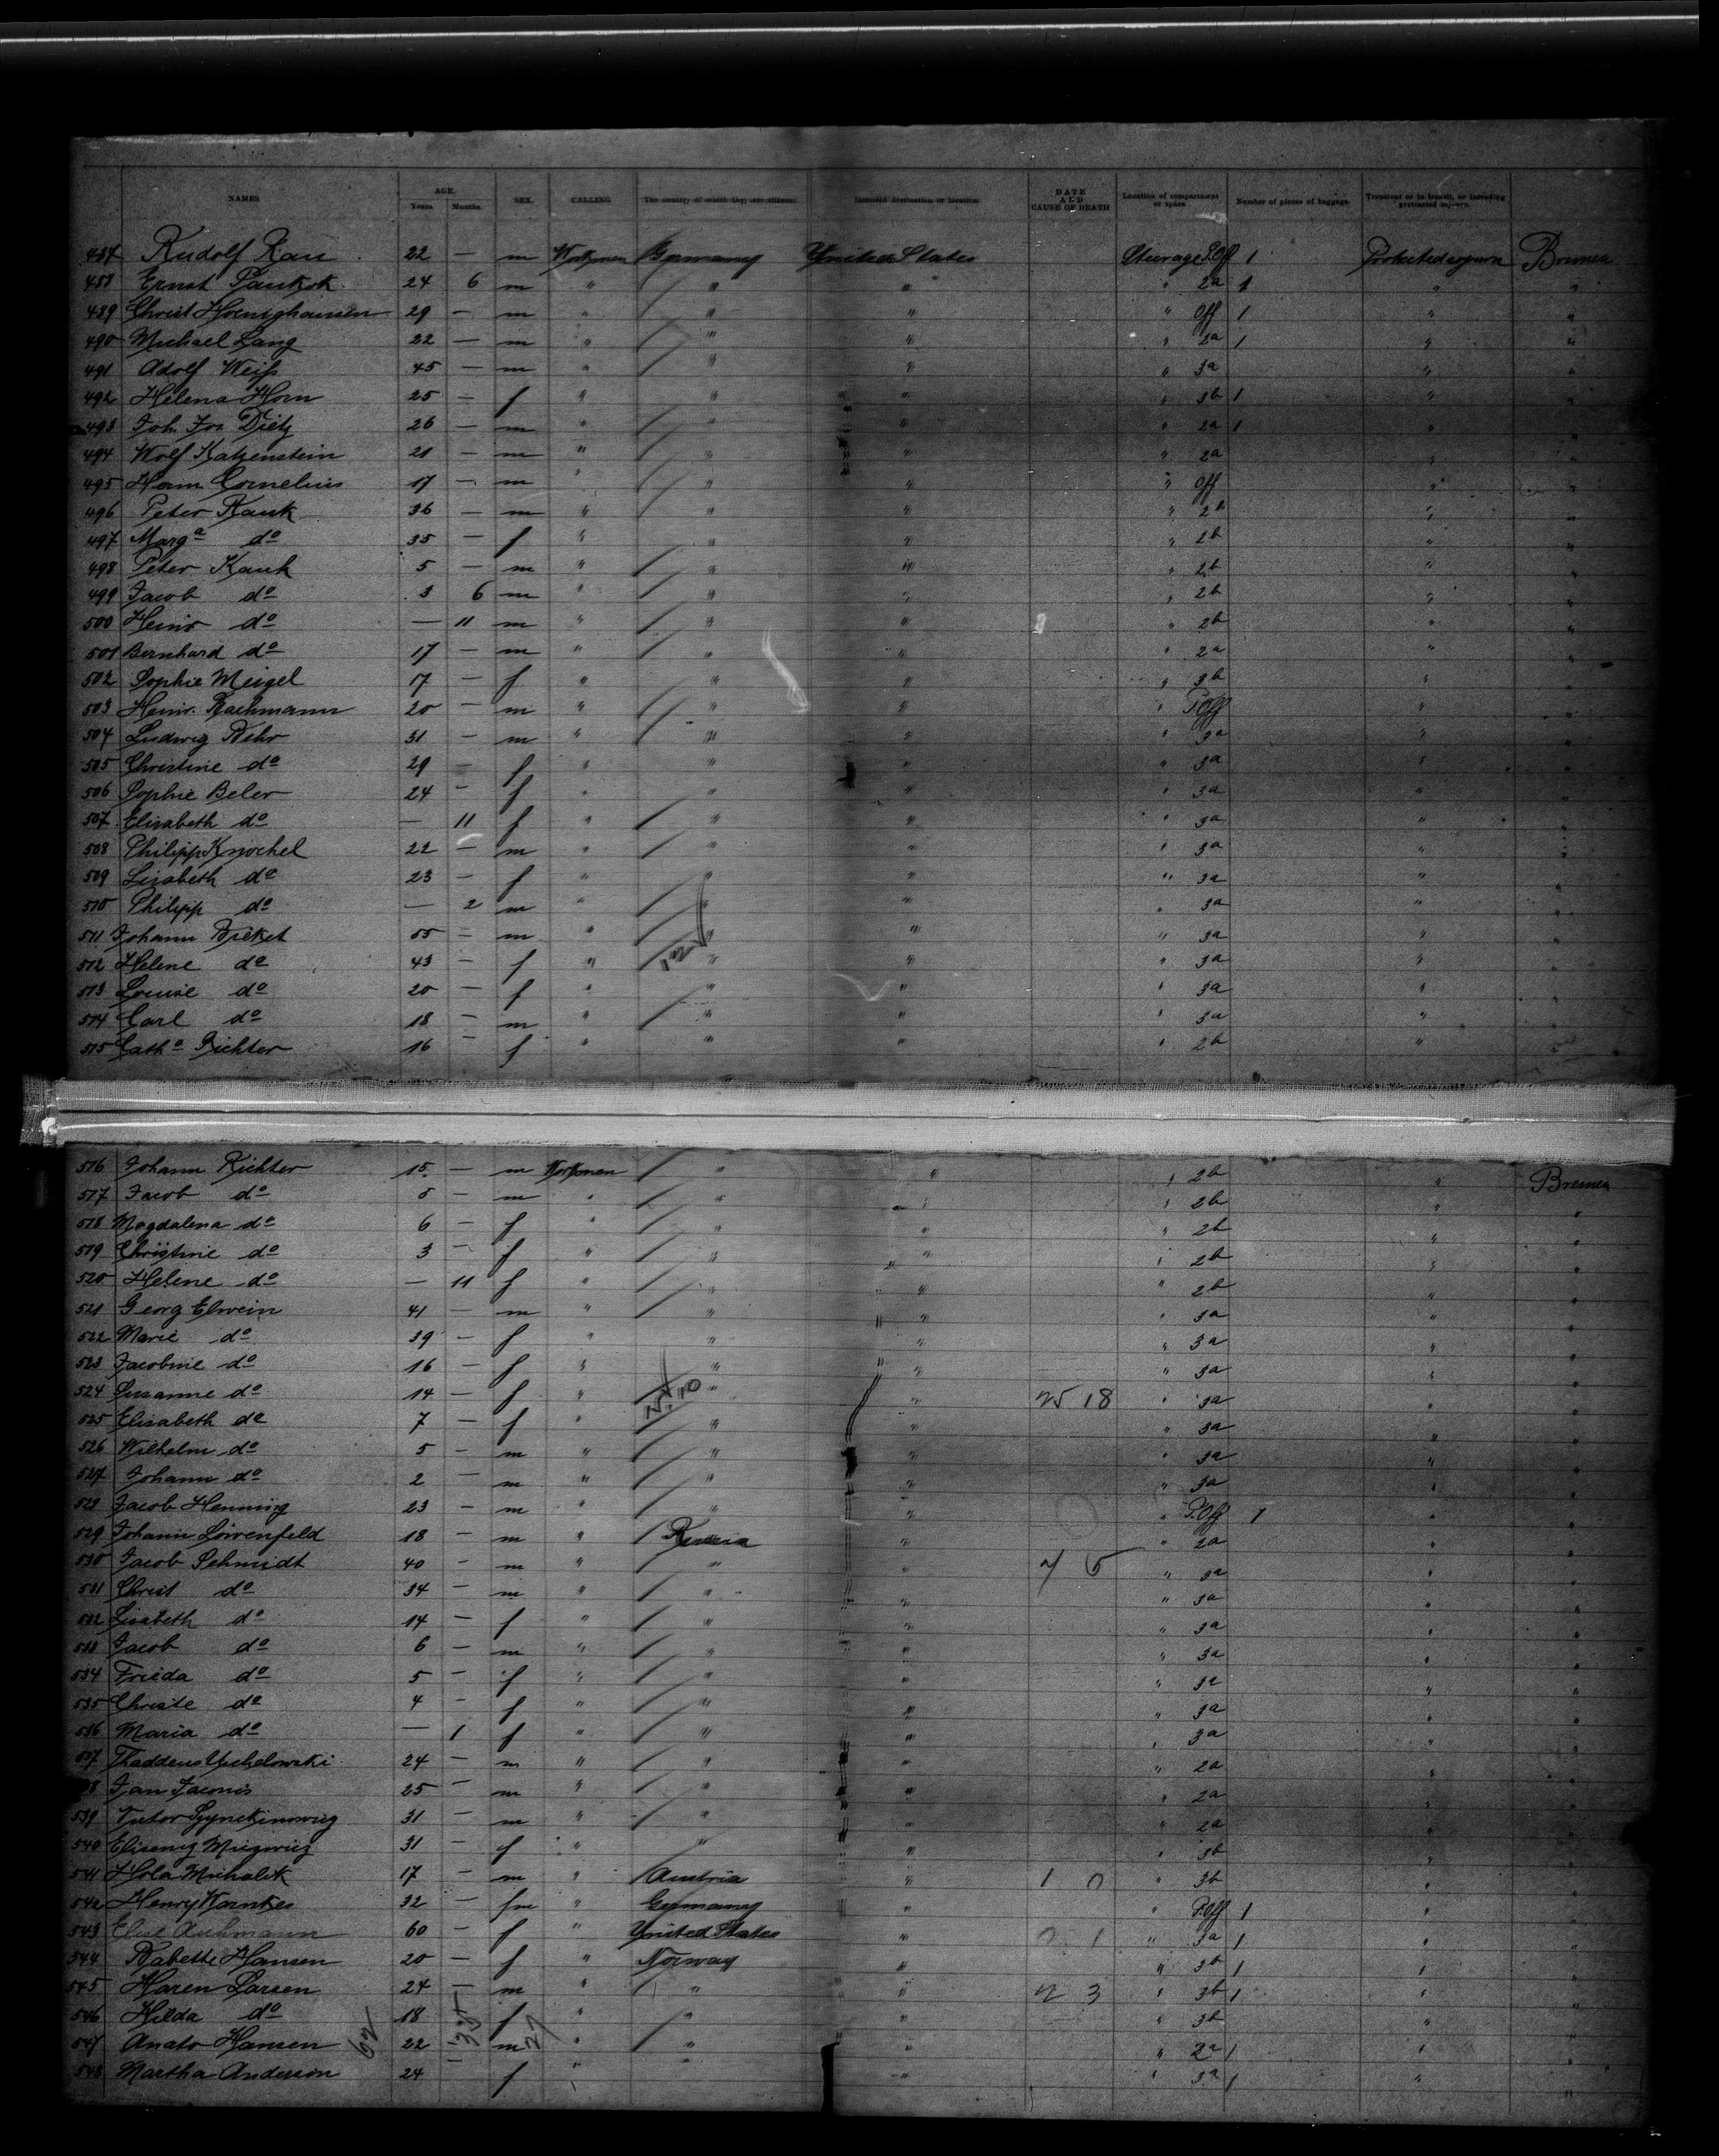 NAMES AGE. Years Months. SEX. CALLING The country of which they are citizens. Intended destination or location. DATE AND CAUSE OF DEATH Location of compartment or space Number of pieces of baggage. Transient or in transit, or intending protracted sojourn.
487 Rudolf Rau 22 — m Workmen Germany United States Steerage P.Off 1 Bremen
488 Ernst 24 6 m " " " " 2a 1 " "
489 Christ Hoeninghausen 29 — m " " " " Off 1 " "
490 Michael Lang 22 — m " " " " 2a 1 " "
491 Adolf Weiß 45 — m " " " " 3a " "
492 Helena Horn 25 — f " " " " 3b 1 " "
493 Joh. Jos. Dietz 26 — m " " " " 2a 1 " "
494 Wolf Katzenstein 21 — m " " " " 2a " "
495 Herm Cornelius 17 — m " " " Off " "
496 Peter Kauk 36 — m " " " " 2b " "
497 Marga do 35 — f " " " " 2b " "
498 Peter Kauk 5 — m " " " " 2b " "
499 Jacob do 3 6 m " " " " 2b " "
500 Heinr do — 11 m " " " " 2b " "
501 Bernhard do 17 — m " " " " 2a " "
502 Sophie Meigel 17 — f " " " " 3b " "
503 Heinr. Bachmann 20 — m " " " " P.Off " "
504 Ludwig 31 — m " " " " 3a " "
505 Christine do 29 — f " " " " 3a " "
506 Sophie Beler 24 — f " " " " 3a " "
507 Elisabeth do — 11 f " " " " 3a " "
508 Philipp Knochel 22 — m " " " " 3a " "
509 Lisabeth do 23 — f " " " " 3a " "
510 Philipp do — 2 m " " " " 3a " "
511 Johann 55 — m " " " " 3a " "
512 Helene do 43 — f " " " " 3a " "
513 Louise do 20 — f " " " " 3a " "
514 Carl do 18 — m " " " " 3a " "
515 Catha Richter 16 — f " " " " 2b " "
516 Johann Richter 15 — m Workmen " " " 2b " Bremen
517 Jacob do 8 — m " " " " 2b " "
518 Magdalena do 6 — f " " " " 2b " "
519 Christine do 3 — f " " " " 2b " "
520 Helene do — 11 f " " " " 2b " "
521 Georg Elwein 41 — m " " " " 3a " "
522 Marie do 39 — f " " " " 3a " "
523 Jacobine do 16 — f " " " " 3a " "
524 Susanne do 14 — f " " " 18 " 3a " "
525 Elisabeth do 7 — f " " " " 3a " "
526 Wilhelm do 5 — m " " " " 3a " "
527 Johann do 2 — m " " " " 3a " "
528 Jacob Henning 23 — m " " " " P.Off 1 " "
529 Johann Löwenfeld 18 — m " Russia " " 2a " "
530 Jacob Schmidt 40 — m " " " " 3a " "
531 Christ do 34 — m " " " " 3a " "
532 Lisabeth do 14 — f " " " " 3a " "
533 Jacob do 6 — m " " " " 3a " "
534 Frieda do 5 — f " " " " 3a " "
535 Christe do 4 — f " " " " 3a " "
536 Maria do — 1 f " " " " 3a " "
537 Thaddeus 24 — m " " " " 2a " "
8 Jan 25 — m " " " " 2a " "
539 31 — m " " " " 2a " "
540 31 — f " " " " 3b " "
541 Michalik 17 — m " Austria " 1 0 " 3b " "
542 Henry 32 — fm " Germany " " P.Off 1 " "
543 Elise 60 — f " United States " 0 1 " 3a 1 " "
544 Babette Hansen 20 — f " Norway " " 3b 1 " "
545 Haren Larsen 24 — m " " " 2 3 " 3b 1 " "
546 Hilda do 18 — f " " " " 3b " "
547 Hansen 22 — m " " " " 2a 1 " "
548 Martha Anderson 24 f " " " " 3a 1 " "